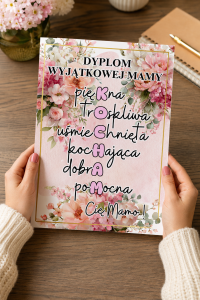 DYPLOM
WYJĄTKOWEJ MAMY
pięKna
trOskliwa
uśmieChnięta
kocHająca
dobrA
poMocna
Cię Mamo!